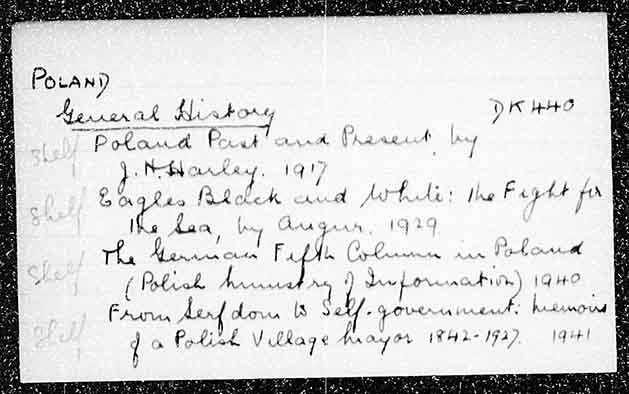 POLAND
General History DK440
Shelf Poland Past and Present, by
J. H. Harley. 1917
Shelf Eagles Black and White: the Fight for
the Sea, by Augur. 1929
Shelf The German Fifth Column in Poland
(Polish Ministry of Information) 1940
Shelf From Serfdom to Self-government: Memoirs
of a Polish Village Mayor 1842-1927. 1941